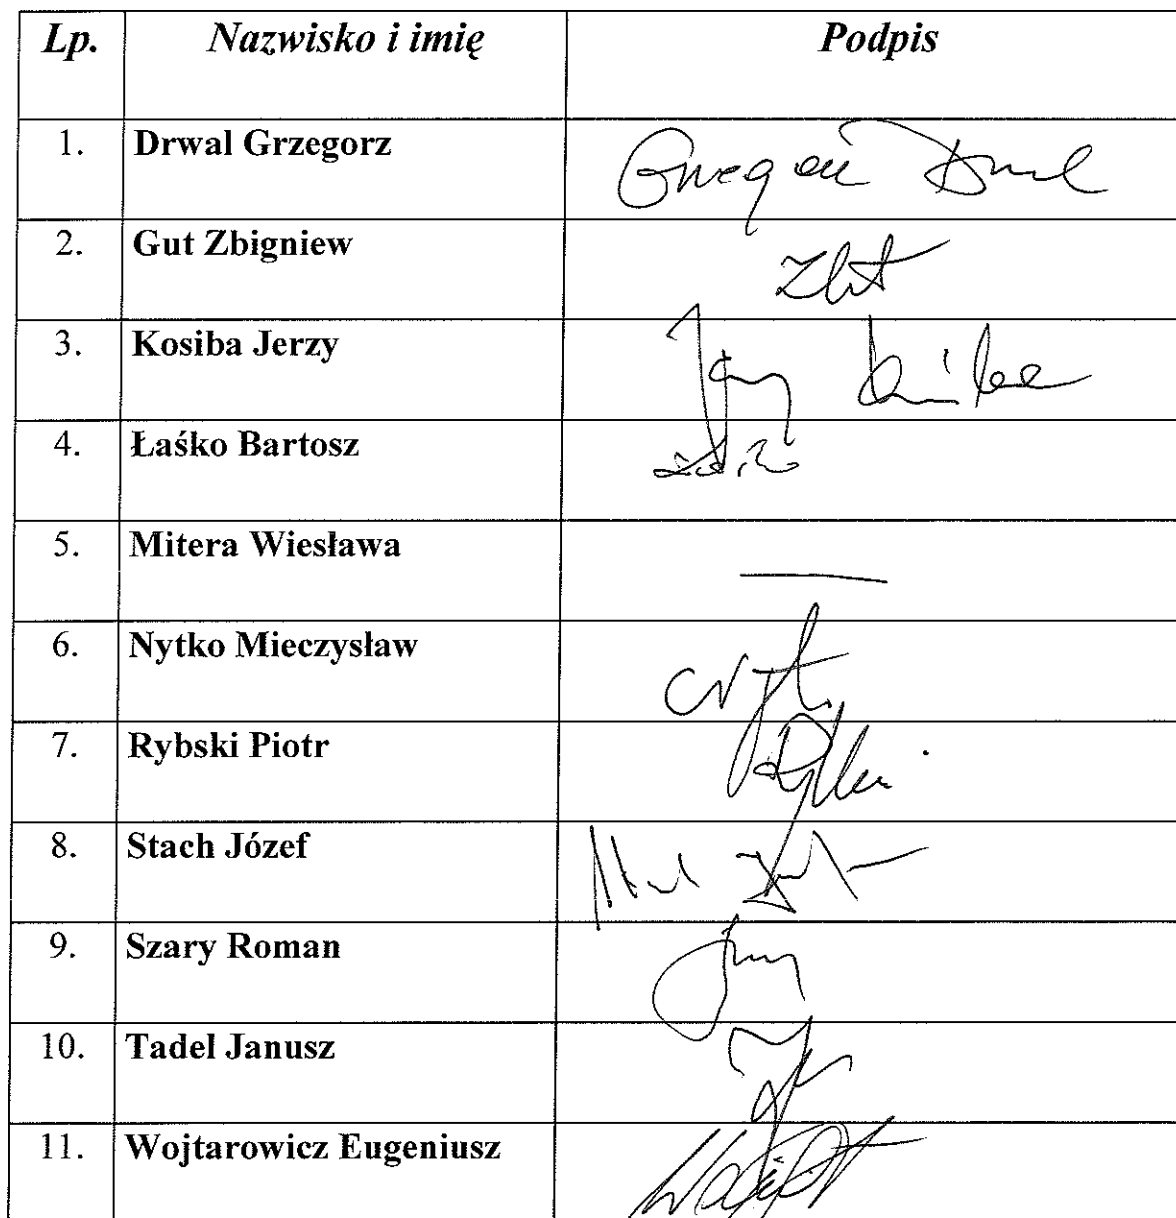 Lp. Nazwisko i imię Podpis
1. Drwal Grzegorz Grzegorz Drwal
2. Gut Zbigniew
3. Kosiba Jerzy Jerzy Kosiba
4. Łaśko Bartosz
5. Mitera Wiesława —
6. Nytko Mieczysław
7. Rybski Piotr
8. Stach Józef
9. Szary Roman
10. Tadel Janusz
11. Wojtarowicz Eugeniusz